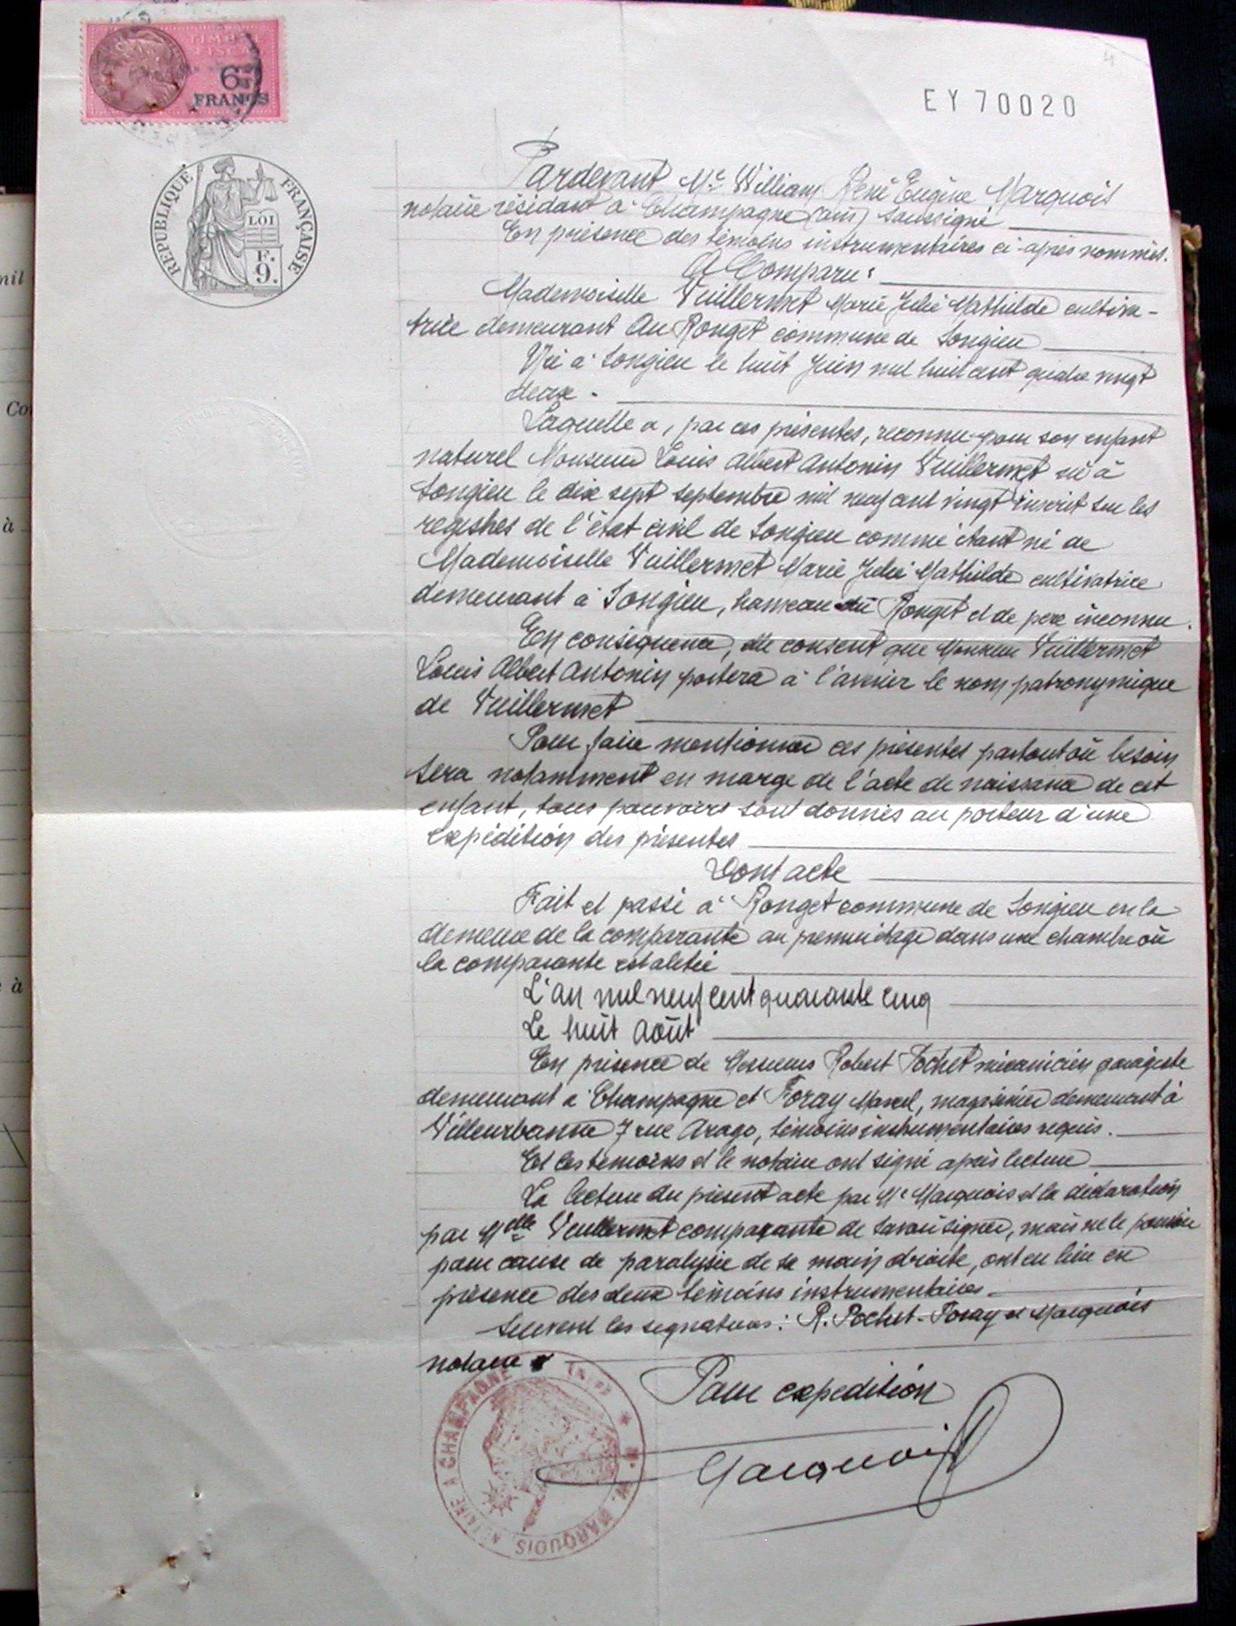 6
FRANCS
EY 70020
RÉPUBLIQUE FRANÇAISE
LOI
F.
9.
Pardevant Me William René Eugène Marquois
notaire résidant à Champagne (Ain) soussigné
En présence des témoins instrumentaires ci-après nommés.
A Comparu :
Mademoiselle Vuillermet Marie Julie Mathilde cultiva-
trice demeurant Au Ronget commune de Songieu
Née à Songieu le huit Juin mil huit cent quatre vingt
deux -
Laquelle a, par ces présentes, reconnu pour son enfant
naturel Monsieur Louis Albert Antonin Vuillermet né à
Songieu le dix sept septembre mil neuf cent vingt inscrit sur les
registres de l'état civil de Songieu comme étant né de
Mademoiselle Vuillermet Marie Julie Mathilde cultivatrice
demeurant à Songieu, hameau du Ronget et de père inconnu.
En conséquence, elle consent que Monsieur Vuillermet
Louis Albert Antonin portera à l'avenir le nom patronymique
de Vuillermet
Pour faire mentionner ces présentes partout où besoin
sera notamment en marge de l'acte de naissance de cet
enfant, tous pouvoirs sont donnés au porteur d'une
expédition des présentes
Dont acte
Fait et passé à Ronget commune de Songieu en la
demeure de la comparante au premier étage dans une chambre où
la comparante est alitée
L'an mil neuf cent quarante cinq
Le huit Août
En présence de Messieurs Robert Pochet mécanicien garagiste
demeurant à Champagne et Foray Marcel, magasinier demeurant à
Villeurbanne 7 rue Arago, témoins instrumentaires requis.
Et les témoins et le notaire ont signé après lecture
La lecture du présent acte par Me Marquois et la déclaration
par Melle Vuillermet comparante de savoir signer, mais ne le pouvoir
pour cause de paralysie de sa main droite, ont eu lieu en
présence des deux témoins instrumentaires.
Suivent les signatures : R. Pochet - Foray et Marquois
notaire
Pour expédition
Marquois
M. W. MARQUOIS, NOTAIRE A CHAMPAGNE